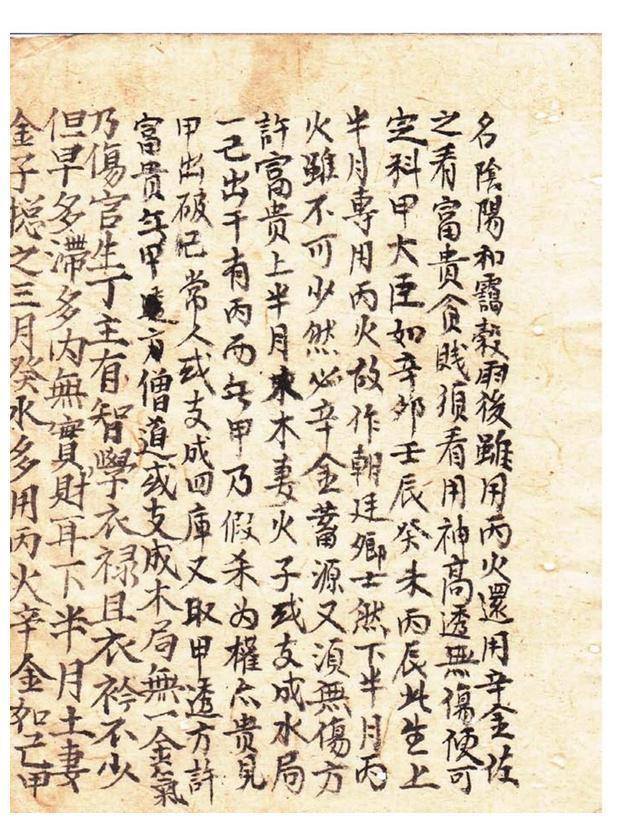 名陰陽和靄穀雨後雖用丙火還用辛金佐
之看富貴貧賤須看用神高透無傷便可
定科甲大臣如辛卯壬辰癸未丙辰此生上
半月專用丙火故作朝廷鄉士然下半月丙
火雖不可少然必辛金蓄源又須無傷方
許富貴上半月木妻火子或支成水局
一己出干有丙而無甲乃假杀为權亦貴見
甲出破己常人或支成四庫又取甲透方許
富貴無甲透方僧道或支成木局無一金氣
乃傷官生丁主有智學衣禄且衣衿不少
但早多滯多内無實財耳下半月土妻
金子總之三月癸水多用丙火辛金如己甲